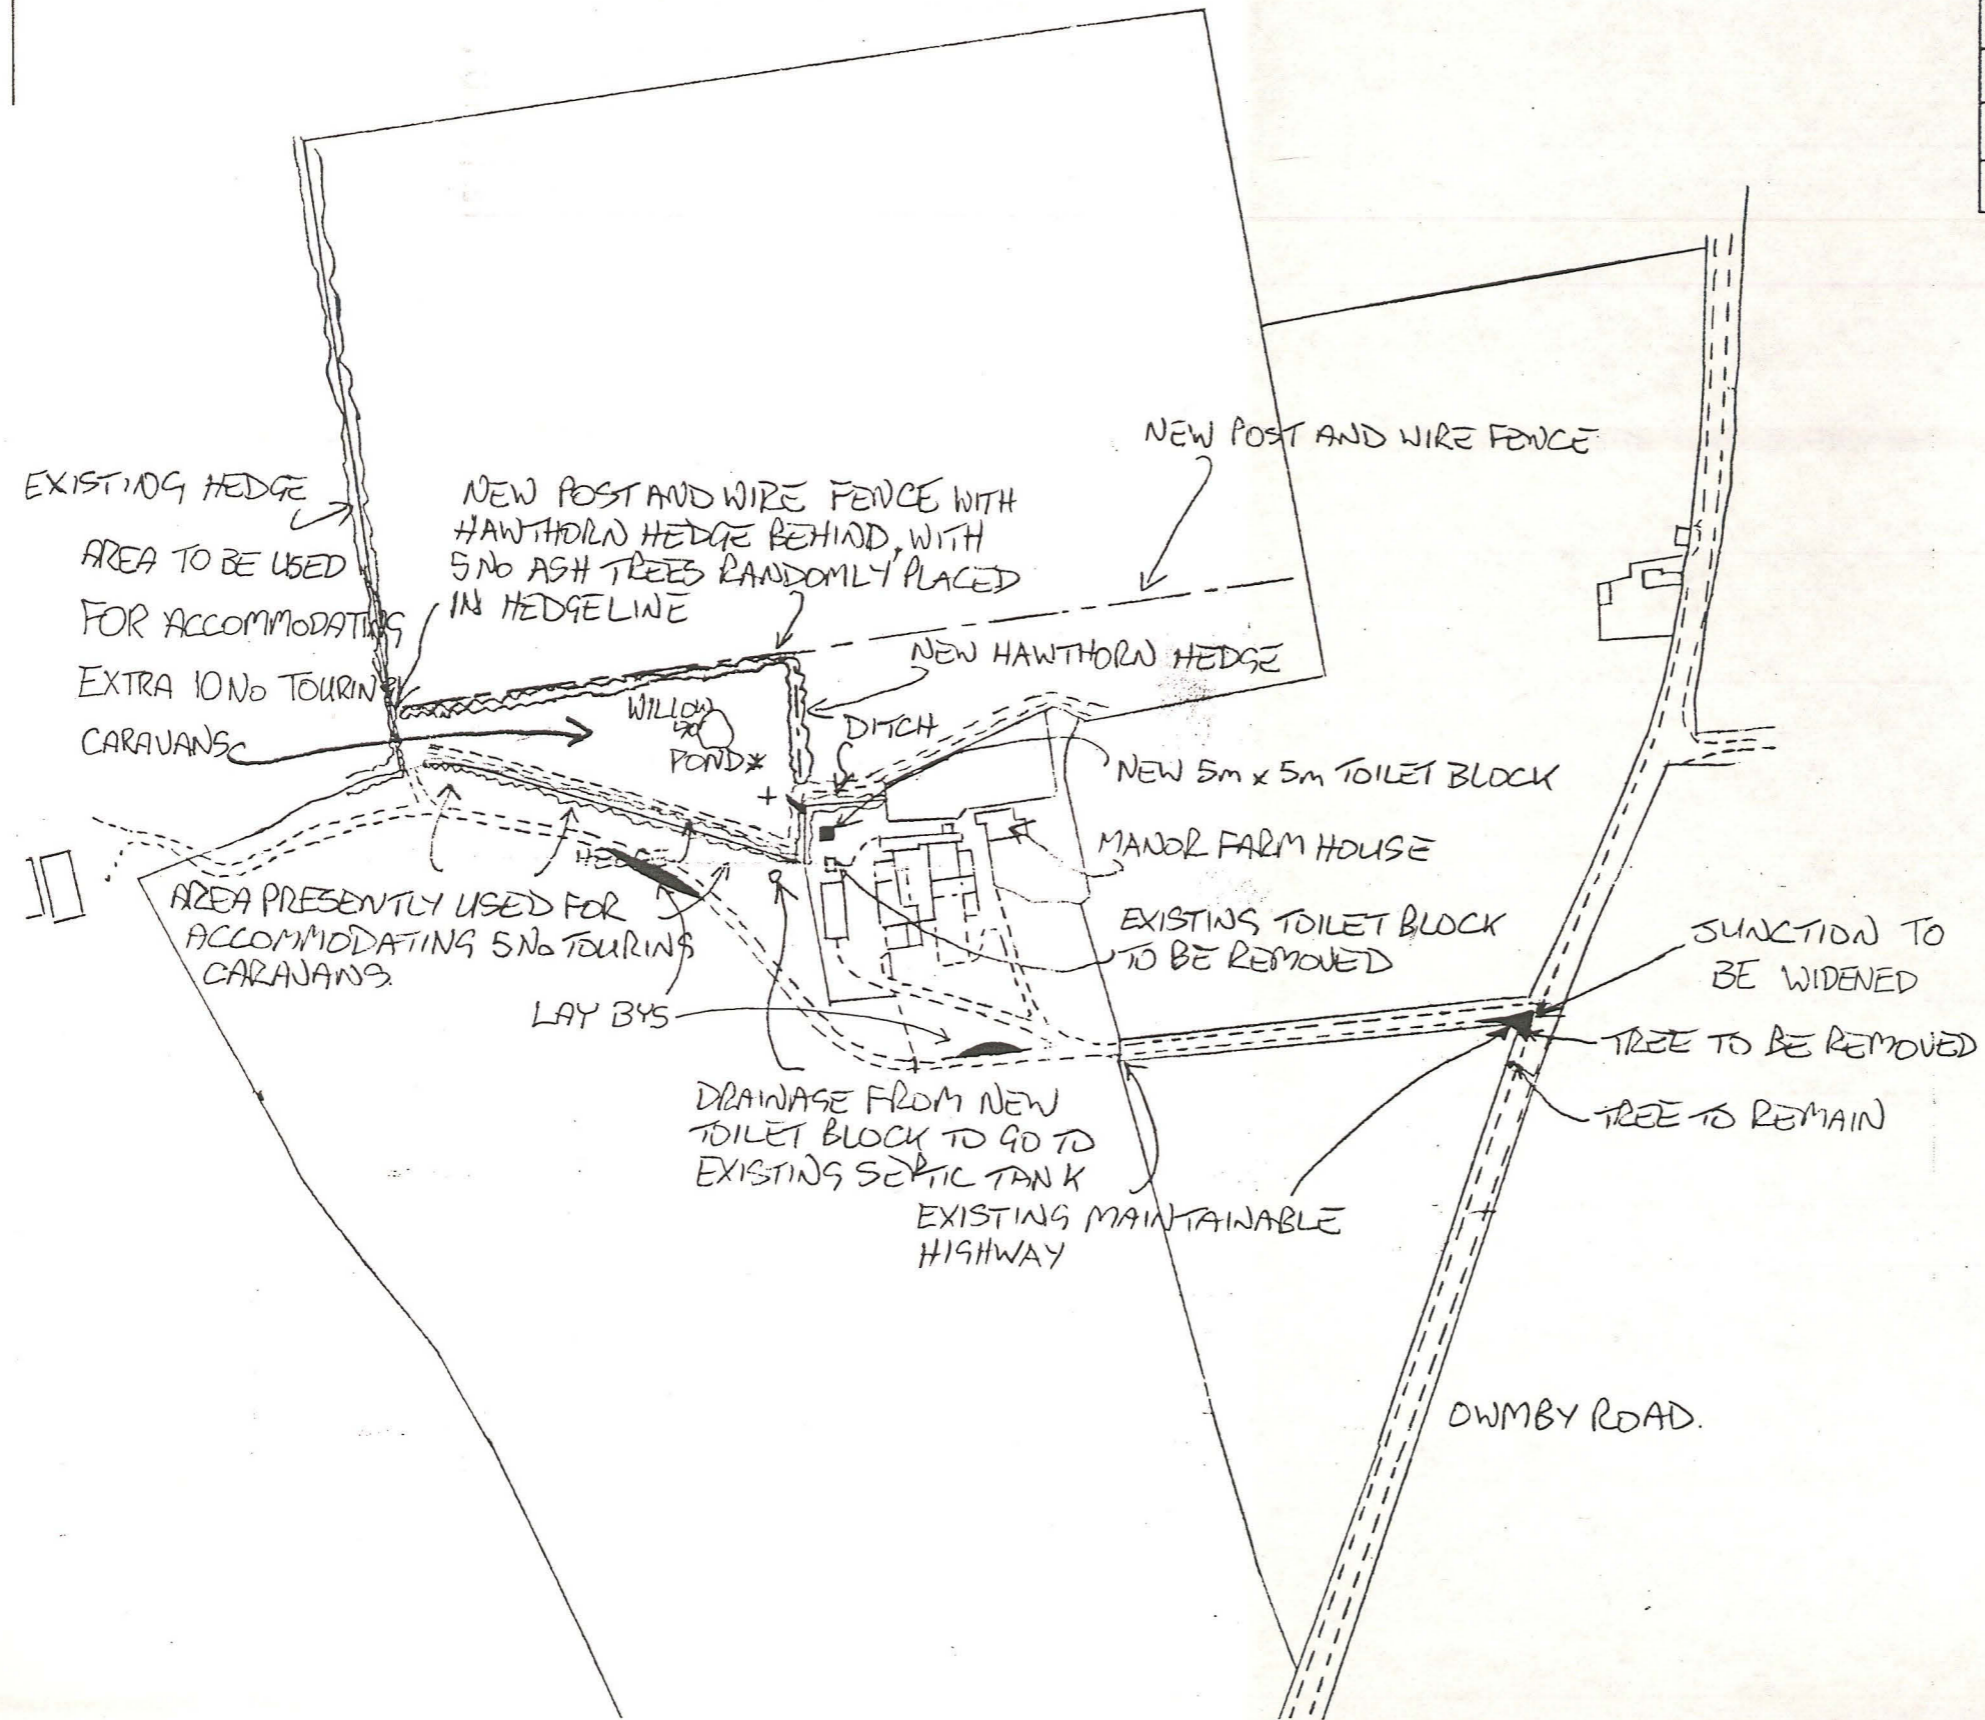 NEW POST AND WIRE FENCE
EXISTING HEDGE
NEW POST AND WIRE FENCE WITH
HAWTHORN HEDGE BEHIND, WITH
5 NO ASH TREES RANDOMLY PLACED
IN HEDGELINE
AREA TO BE USED
FOR ACCOMMODATING
EXTRA 10 NO TOURING
CARAVANS
NEW HAWTHORN HEDGE
WILLOW
POND
DITCH
NEW 5m x 5m TOILET BLOCK
MANOR FARM HOUSE
HEDGE
AREA PRESENTLY USED FOR
ACCOMMODATING 5 NO TOURING
CARAVANS.
EXISTING TOILET BLOCK
TO BE REMOVED
JUNCTION TO
BE WIDENED
LAY BYS
TREE TO BE REMOVED
TREE TO REMAIN
DRAINAGE FROM NEW
TOILET BLOCK TO GO TO
EXISTING SEPTIC TANK
EXISTING MAINTAINABLE
HIGHWAY
OWMBY ROAD.